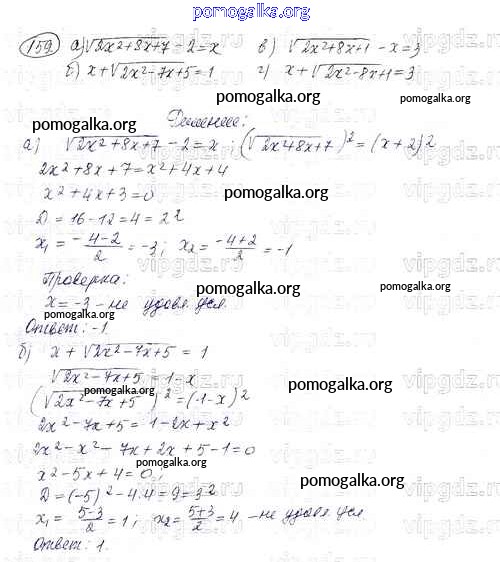 pomogalka.org
159 а) √2x²+8x+7 - 2 = x в) √2x²+8x+1 - x = 3
б) x + √2x²-7x+5 = 1 г) x + √2x²-8x+1 = 3
pomogalka.org pomogalka.org
Решение:
pomogalka.org
а) √2x²+8x+7 - 2 = x ; (√2x+8x+7)² = (x+2)2
2x²+8x+7 = x²+4x+4
x²+4x+3 = 0 pomogalka.org
D = 16-12 = 4 = 2²
x₁ = -4-2/2 = -3; x₂ = -4+2/2 = -1
pomogalka.org
Проверка:
x = -3 - не удовл. усл. pomogalka.org
Ответ: -1. pomogalka.org
б) x + √2x²-7x+5 = 1
√2x²-7x+5 = 1-x
pomogalka.org pomogalka.org
(√2x²-7x+5)² = (1-x)2
2x²-7x+5 = 1-2x+x²
pomogalka.org
2x²-x²-7x+2x+5-1=0
pomogalka.org
x²-5x+4=0;
pomogalka.org
D = (-5)²-4·4 = 9 = 3²
x₁ = 5-3/2 = 1; x₂ = 5+3/2 = 4 - не удовл. усл
Ответ: 1. pomogalka.org